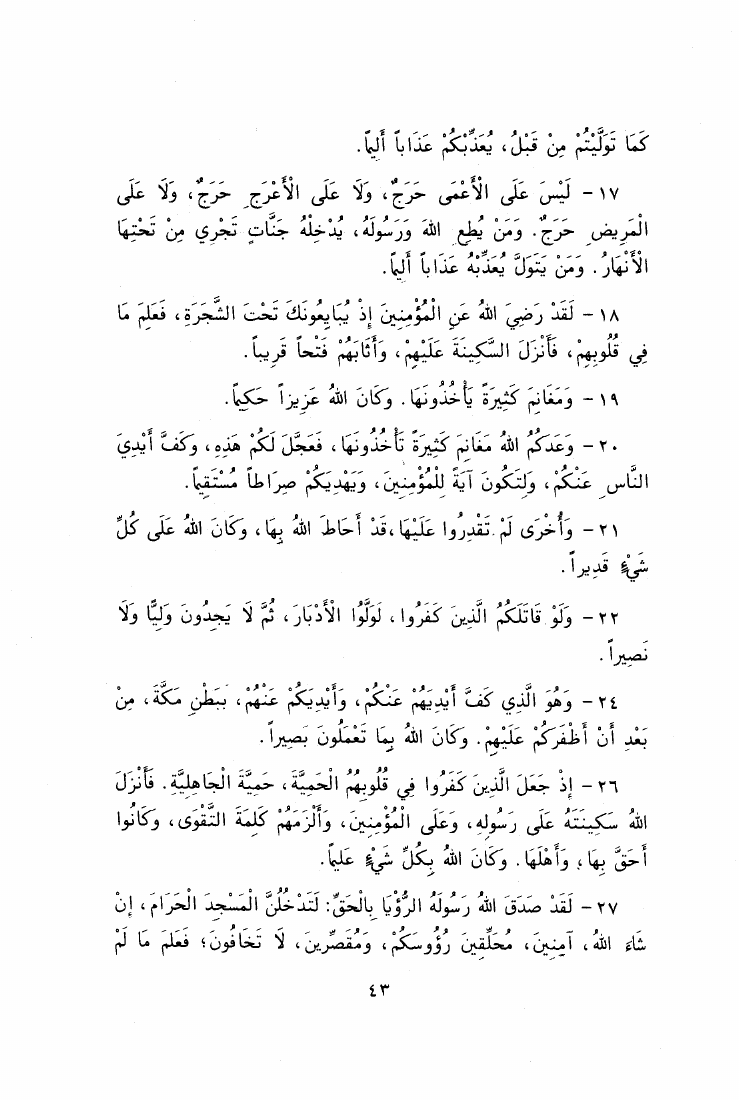 كَمَا تَوَلَّيْتُمْ مِنْ قَبْلُ، يُعَذِّبْكُمْ عَذَاباً أَلِيماً.
١٧ - لَيْسَ عَلَى الْأَعْمَى حَرَجٌ، وَلَا عَلَى الْأَعْرَجِ حَرَجٌ، وَلَا عَلَى
الْمَرِيضِ حَرَجٌ. وَمَنْ يُطِعِ اللهَ وَرَسُولَهُ، يُدْخِلْهُ جَنَّاتٍ تَجْرِي مِنْ تَحْتِهَا
الْأَنْهَارُ. وَمَنْ يَتَوَلَّ يُعَذِّبْهُ عَذَاباً أَلِيماً.
١٨ - لَقَدْ رَضِيَ اللهُ عَنِ الْمُؤْمِنِينَ إِذْ يُبَايِعُونَكَ تَحْتَ الشَّجَرَةِ، فَعَلِمَ مَا
فِي قُلُوبِهِمْ، فَأَنْزَلَ السَّكِينَةَ عَلَيْهِمْ، وَأَثَابَهُمْ فَتْحاً قَرِيباً.
١٩ - وَمَغَانِمَ كَثِيرَةً يَأْخُذُونَهَا. وَكَانَ اللهُ عَزِيزاً حَكِيماً.
٢٠ - وَعَدَكُمُ اللهُ مَغَانِمَ كَثِيرَةً تَأْخُذُونَهَا، فَعَجَّلَ لَكُمْ هَذِهِ، وَكَفَّ أَيْدِيَ
النَّاسِ عَنْكُمْ، وَلِتَكُونَ آيَةً لِلْمُؤْمِنِينَ، وَيَهْدِيَكُمْ صِرَاطاً مُسْتَقِيماً.
٢١ - وَأُخْرَى لَمْ تَقْدِرُوا عَلَيْهَا، قَدْ أَحَاطَ اللهُ بِهَا، وَكَانَ اللهُ عَلَى كُلِّ
شَيْءٍ قَدِيراً.
٢٢ - وَلَوْ قَاتَلَكُمُ الَّذِينَ كَفَرُوا، لَوَلَّوُا الْأَدْبَارَ، ثُمَّ لَا يَجِدُونَ وَلِيًّا وَلَا
نَصِيراً.
٢٤ - وَهُوَ الَّذِي كَفَّ أَيْدِيَهُمْ عَنْكُمْ، وَأَيْدِيَكُمْ عَنْهُمْ، بِبَطْنِ مَكَّةَ، مِنْ
بَعْدِ أَنْ أَظْفَرَكُمْ عَلَيْهِمْ. وَكَانَ اللهُ بِمَا تَعْمَلُونَ بَصِيراً.
٢٦ - إِذْ جَعَلَ الَّذِينَ كَفَرُوا فِي قُلُوبِهُمُ الْحَمِيَّةَ، حَمِيَّةَ الْجَاهِلِيَّةِ. فَأَنْزَلَ
اللهُ سَكِينَتَهُ عَلَى رَسُولِهِ، وَعَلَى الْمُؤْمِنِينَ، وَأَلْزَمَهُمْ كَلِمَةَ التَّقْوَى، وَكَانُوا
أَحَقَّ بِهَا، وَأَهْلَهَا. وَكَانَ اللهُ بِكُلِّ شَيْءٍ عَلِيماً.
٢٧ - لَقَدْ صَدَقَ اللهُ رَسُولَهُ الرُّؤْيَا بِالْحَقِّ: لَتَدْخُلُنَّ الْمَسْجِدَ الْحَرَامَ، إِنْ
شَاءَ اللهُ، آمِنِينَ، مُحَلِّقِينَ رُؤُوسَكُمْ، وَمُقَصِّرِينَ، لَا تَخَافُونَ؛ فَعَلِمَ مَا لَمْ
٤٣